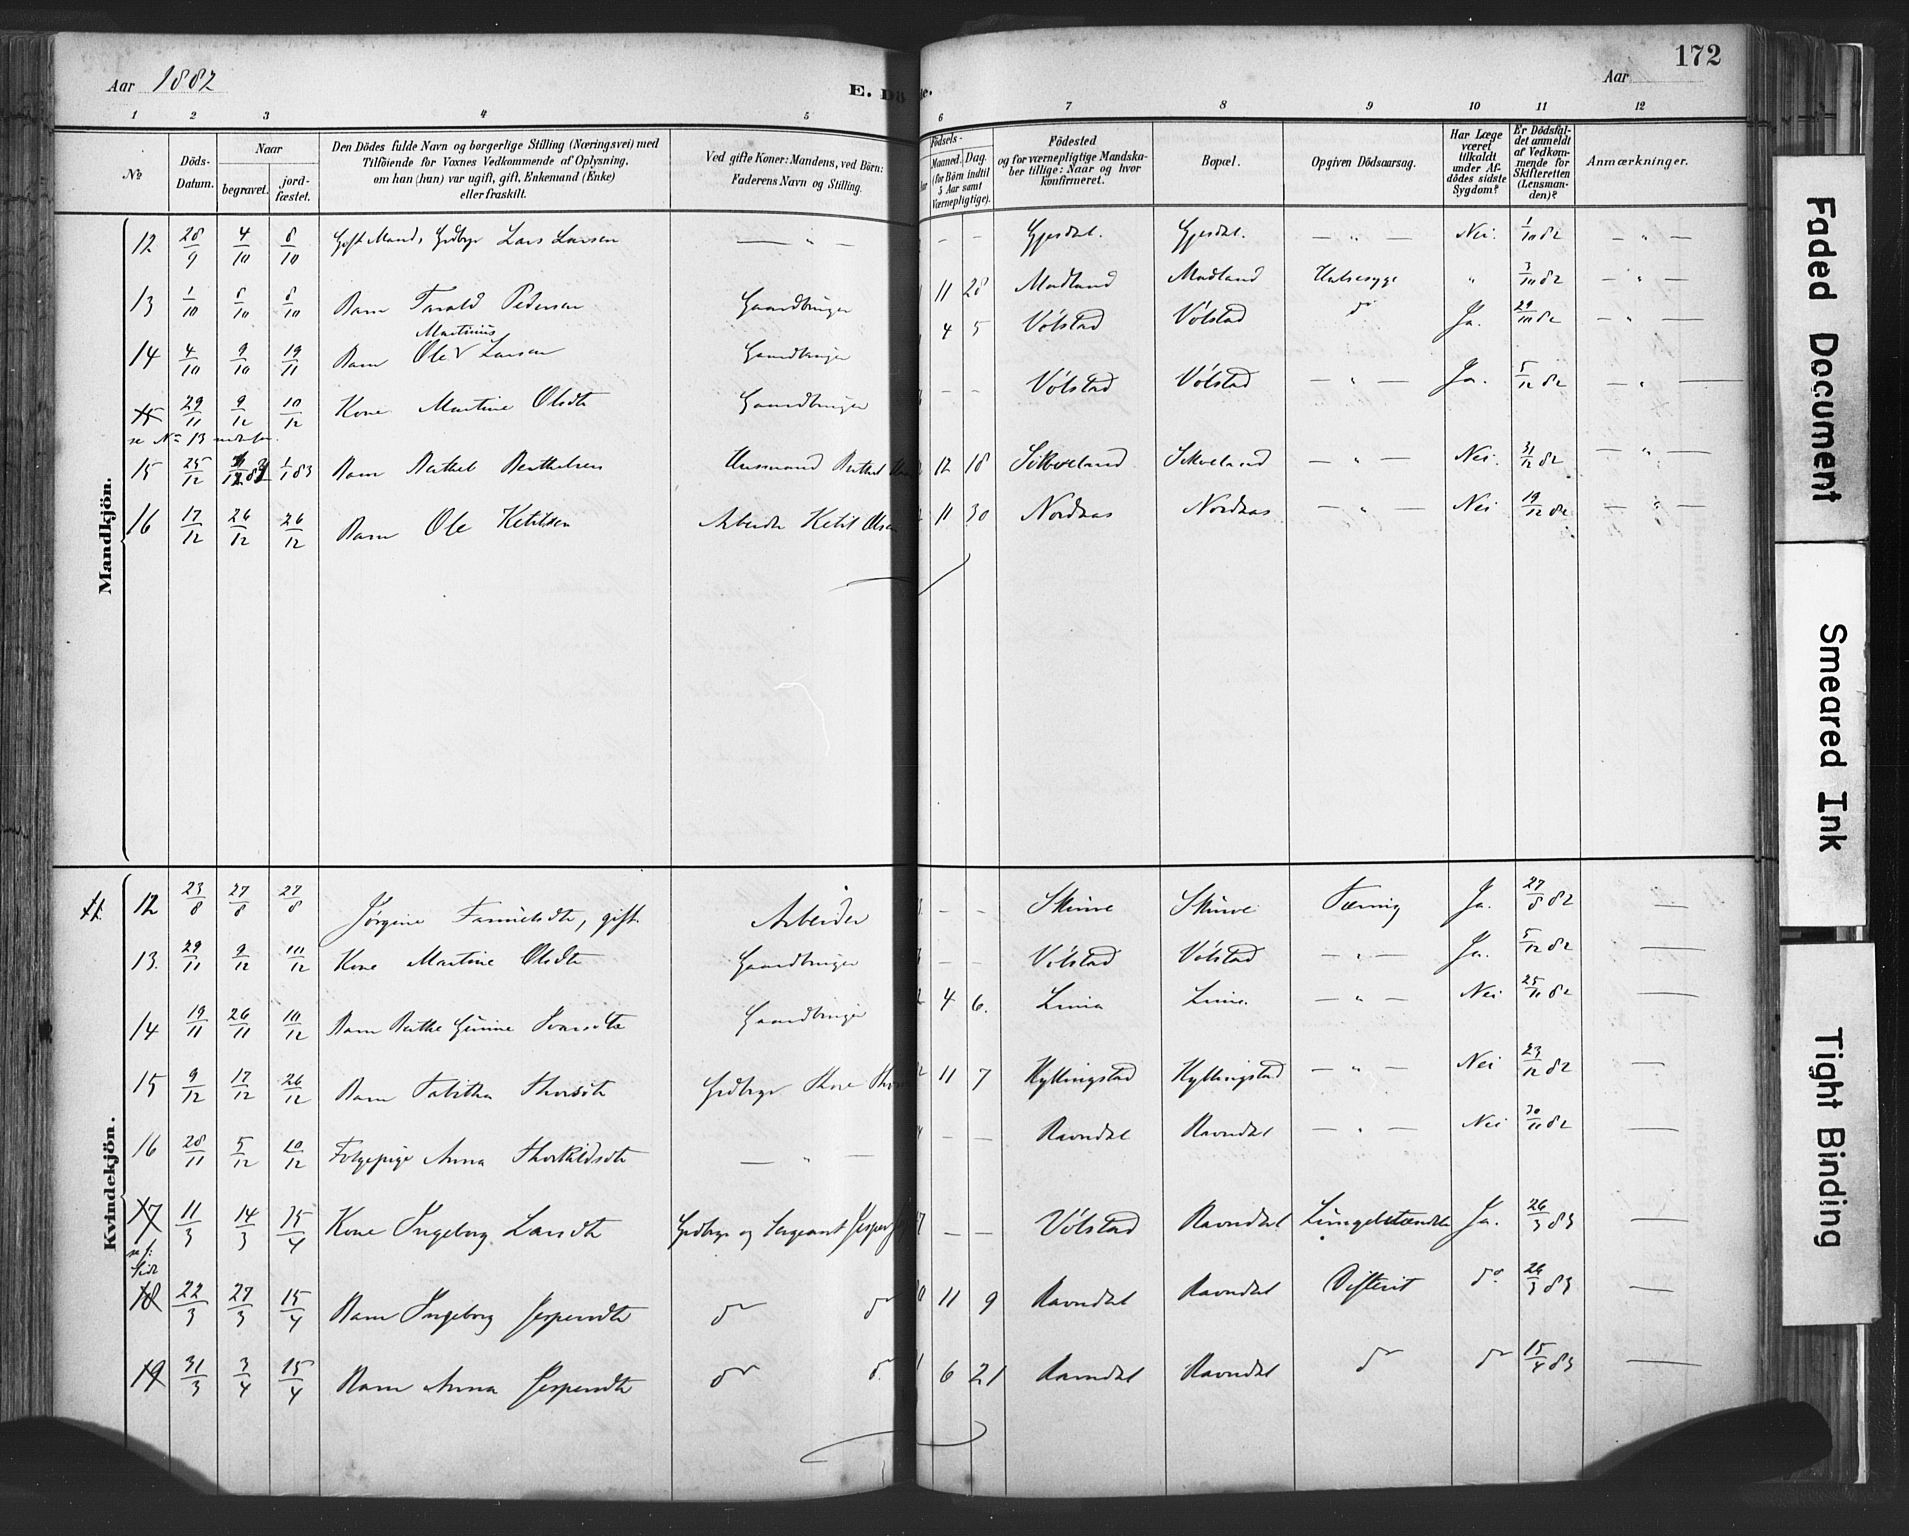 172
Aar 1882
E. Dö
de.
Aar
1 2 3 4 5 6 7 8 9 10 11 12
No
Döds-Datum.
Naar
begravet.
jord-fæstet.
Den Dödes fulde Navn og borgerlige Stilling (Næringsvei) med
Tilföiende for Voxnes Vedkommende af Oplysning,
om han (hun) var ugift, gift, Enkemand (Enke)
eller fraskilt.
Ved gifte Koner: Mandens, ved Börn:
Faderens Navn og Stilling.
Födsels-
Maaned. Dag.
(for Börn indtil
5 Aar samt
Værnepligtige).
Födested
og for værnepligtige Mandska-
ber tillige: Naar og hvor
konfirmeret.
Bopæl.
Opgiven Dödsaarsag.
Har Læge
været
tilkaldt
under Af-
dödes sidste
Sygdom?
Er Dödsfal-
det anmeldt
af Vedkom-
mende for
Skifteretten
(Lensman-
den)?
Anmærkninger.
Mandkjön.
12 28/9 4/10 8/10 Gift Mand, Grdbgr Lars Larsen — " — — — Gjesdal. Gjesdal. — " — Nei. 1/10 82 — " —
13 1/10 8/10 8/10 Barn Tarald Pedersen Gaardbruger 11 28 Madland Madland Halsesyge " 3/10 82 — " —
Martinius
14 4/10 9/10 19/11 Barn Ole V Larsen Gaardbruger 4 5 Vølstad Vølstad do Ja. 29/10 82 — " —
15 29/11 9/12 10/12 Kone Martine Olsdtr Gaardbruger — — Vølstad Vølstad — " — Ja. 5/12 82 — " —
se No 13 nedenfor.
15 25/12 31/12 82 1/1 83 Barn Berthel Berthelsen Husmand Berthel 12 18 Sikveland Sikveland — " — Nei. 31/12 82 — " —
16 17/12 26/12 26/12 Barn Ole Ketilsen Arbeider Ketil Olsen 11 30 Nordaas Nordaas — " — Nei 19/12 82 — " —
Kvindekjön.
12 23/8 27/8 27/8 Jørgine gift. Arbeider — — Skurve Skurve Tæring Ja. 27/8 82 —
13. 29/11 9/12 10/12 Kone Martine Olsdtr Gaardbruger — — Vølstad Vølstad — " — Ja. 5/12 82 —
14 19/11 26/11 10/12 Barn Berthe Gurine Gaardbruger 4 6. Lima Lima. — " — Nei 25/11 82 —
15 9/12 17/12 26/12 Barn Tabitha Thorsdtr Grdbrgr Thore 11 7 Kyllingstad Kyllingstad — " — Nei 23/12 82 —
16 28/11 5/12 10/12 Anna Thorkildsdtr — " — — — Ravndal Ravndal — " — Nei 30/11 82 —
17 11/3 14/3 15/4 Kone Ingeborg Larsdtr Grdbrgr og Sergeant Jesper — — Vølstad Ravndal Lungebetændelse Ja. 26/3 83 —
se f:
Side
18 22/3 27/3 15/4 Barn Ingeborg Jespersdtr do do 11 9 Ravndal Ravndal Difterit do 26/3 83 —
19 31/3 3/4 15/4 Barn Anna Jespersdtr do do 6 21 Ravndal Ravndal do do 15/4 83 —
Faded Document
Smeared Ink
Tight Binding